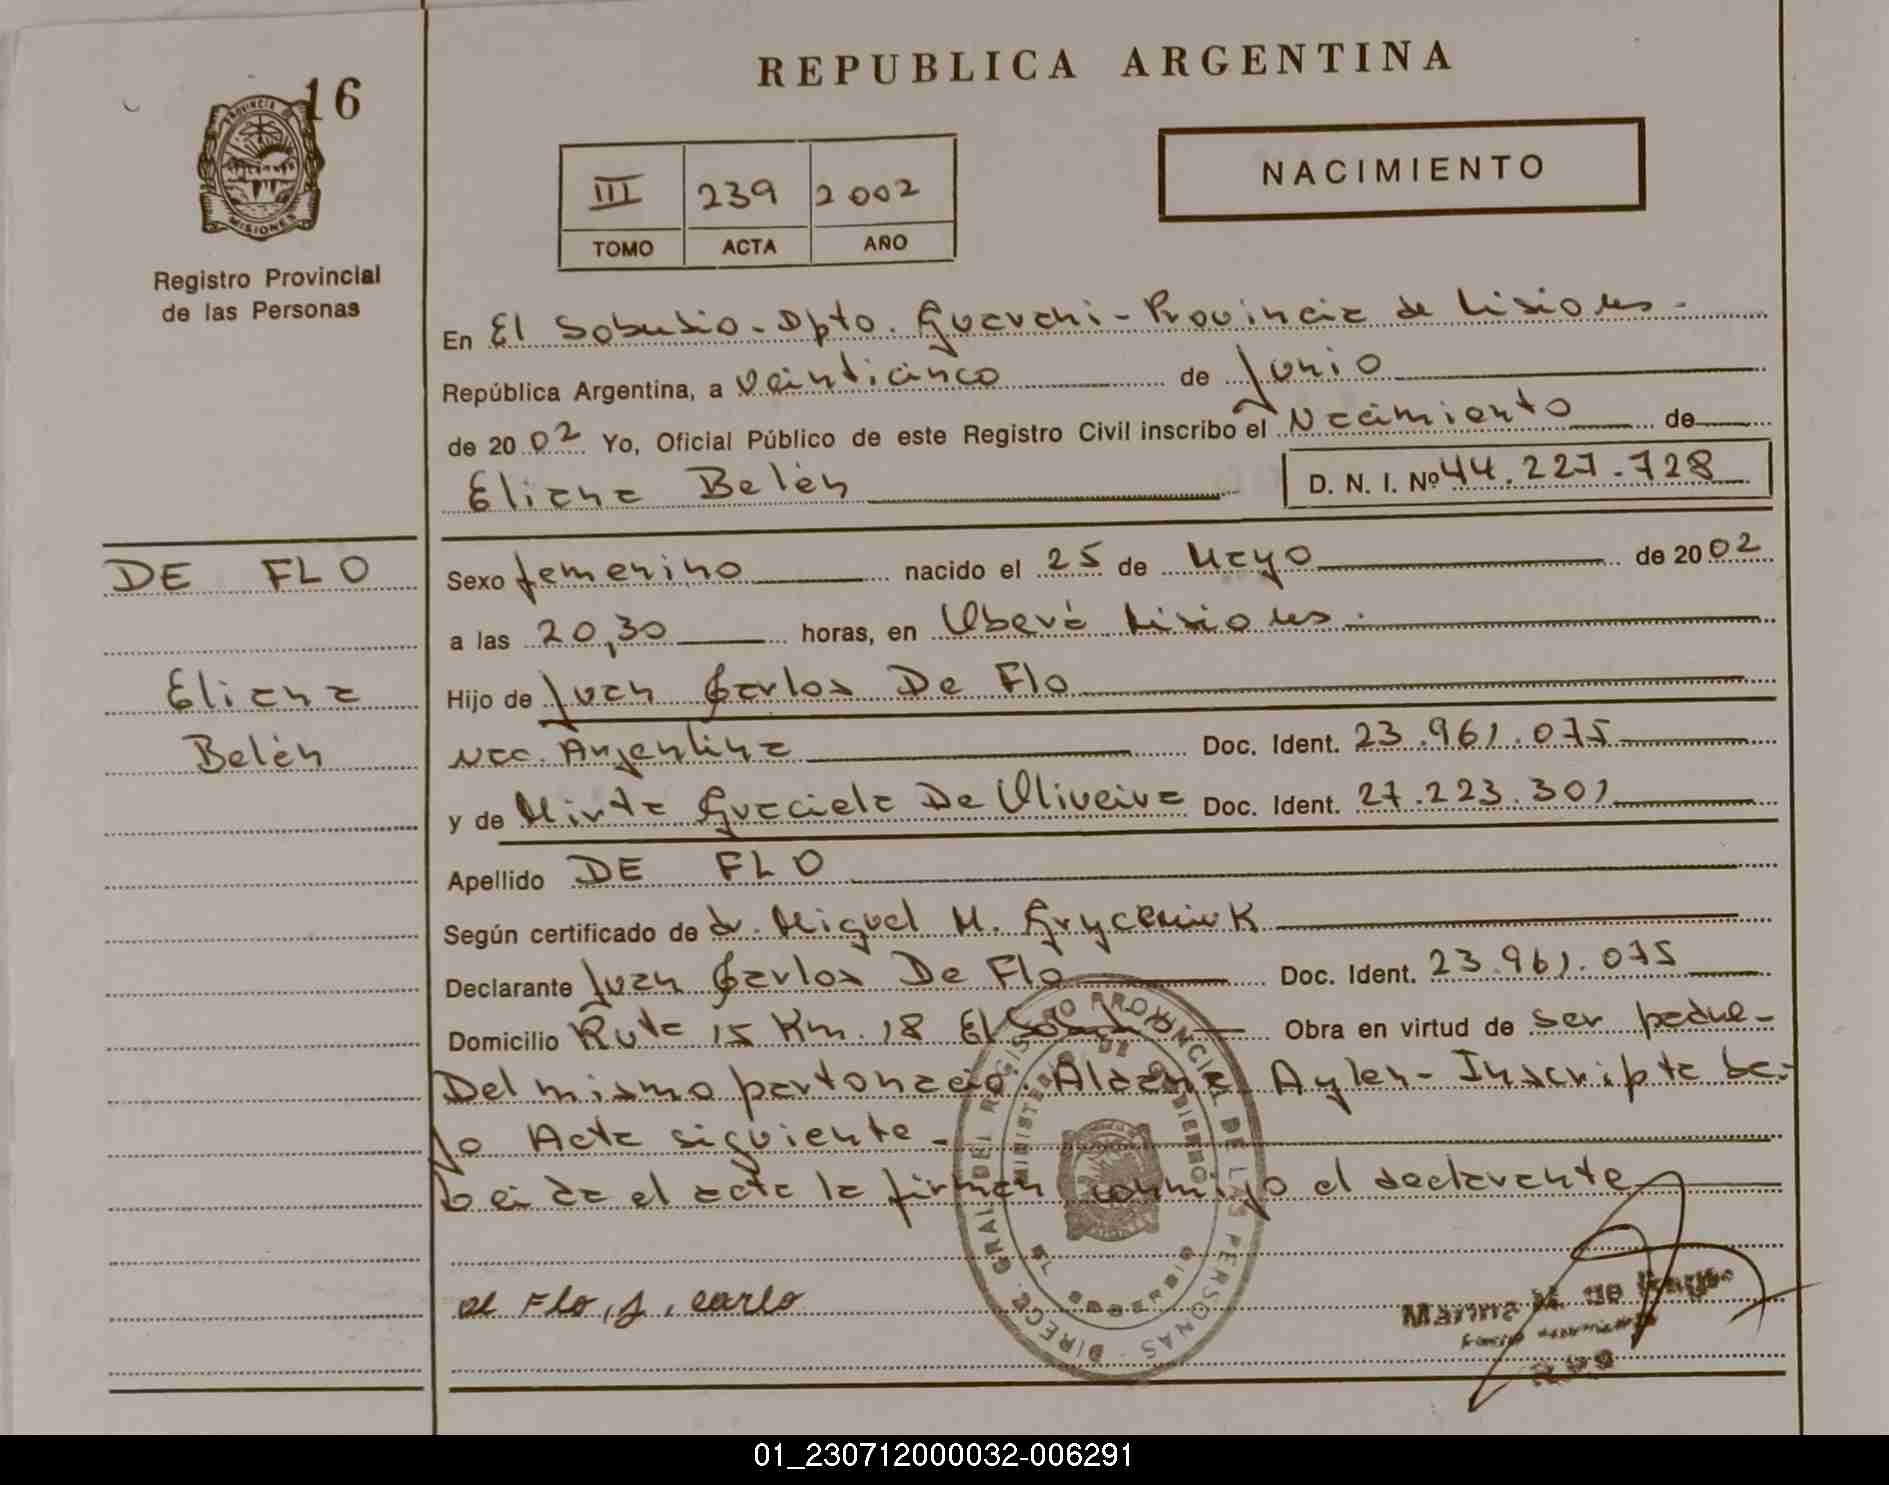 REPUBLICA ARGENTINA
16
PROVINCIA DE
MISIONES
Registro Provincial
de las Personas
III 239 2002
TOMO ACTA AÑO
NACIMIENTO
En El Soberbio - Dpto. Guaraní - Provincia de Misiones -
República Argentina, a veinticinco de Junio
de 2002 Yo, Oficial Público de este Registro Civil inscribo el Nacimiento de
Eliana Belén D. N. I. Nº 44.227.728
DE FLO
Eliana
Belén
Sexo femenino nacido el 25 de Mayo de 2002
a las 20,30 horas, en Oberá Misiones.
Hijo de Juan Carlos De Flo
Nac. Argentina Doc. Ident. 23.961.075
y de Mirta Graciela De Oliveira Doc. Ident. 27.223.301
Apellido DE FLO
Según certificado de dr. Miguel M.
Declarante Juan Carlos De Flo Doc. Ident. 23.961.075
Domicilio Ruta 15 Km. 18 El Obra en virtud de ser padre -
Del mismo parto nació: Aylen - Inscripta ba-
jo Acta siguiente -
Leida el acta la firman conmigo el declarante
de Flo, J, carlo
DIREC. GRAL. DEL REGISTRO PROVINCIAL DE LAS PERSONAS
MINISTERIO DE GOBIERNO
EL SOBERBIO